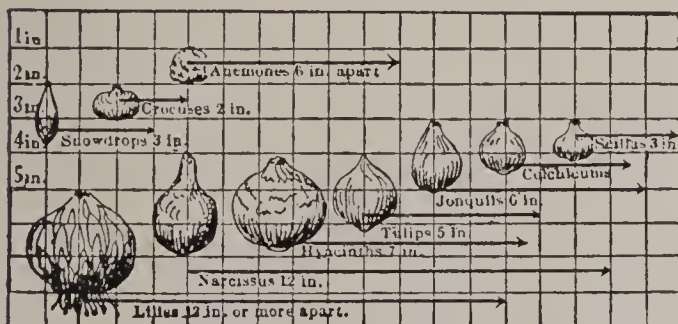 1 in
2 in.
Anemones 6 in. apart
3 in.
Crocuses 2 in.
Snowdrops 3 in.
4 in.
Scillas 3 in
Colchicums
5 in.
Jonquils 6 in.
Tulips 5 in
Hyacinths 7 in.
Narcissus 12 in.
Lilies 12 in. or more apart.